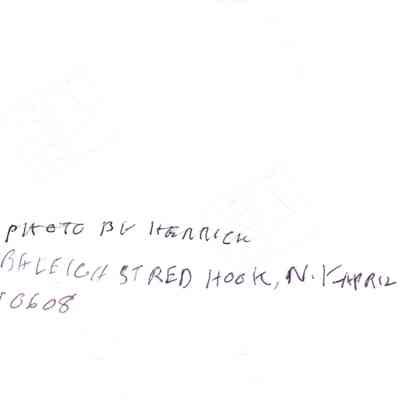 PHOTO BY HERRICK
RALEIGH ST RED HOOK, N.Y APRIL
0608